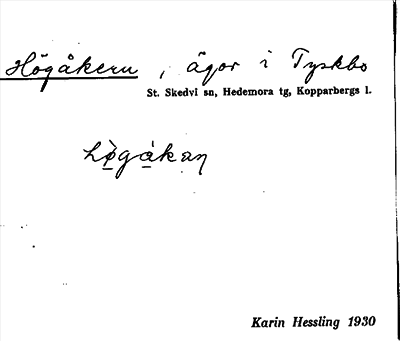 Högåkern, ägor i Tyskbo
St. Skedvi sn, Hedemora tg, Kopparbergs l.
hø̠̀ga̠kaŋ
Karin Hessling 1930